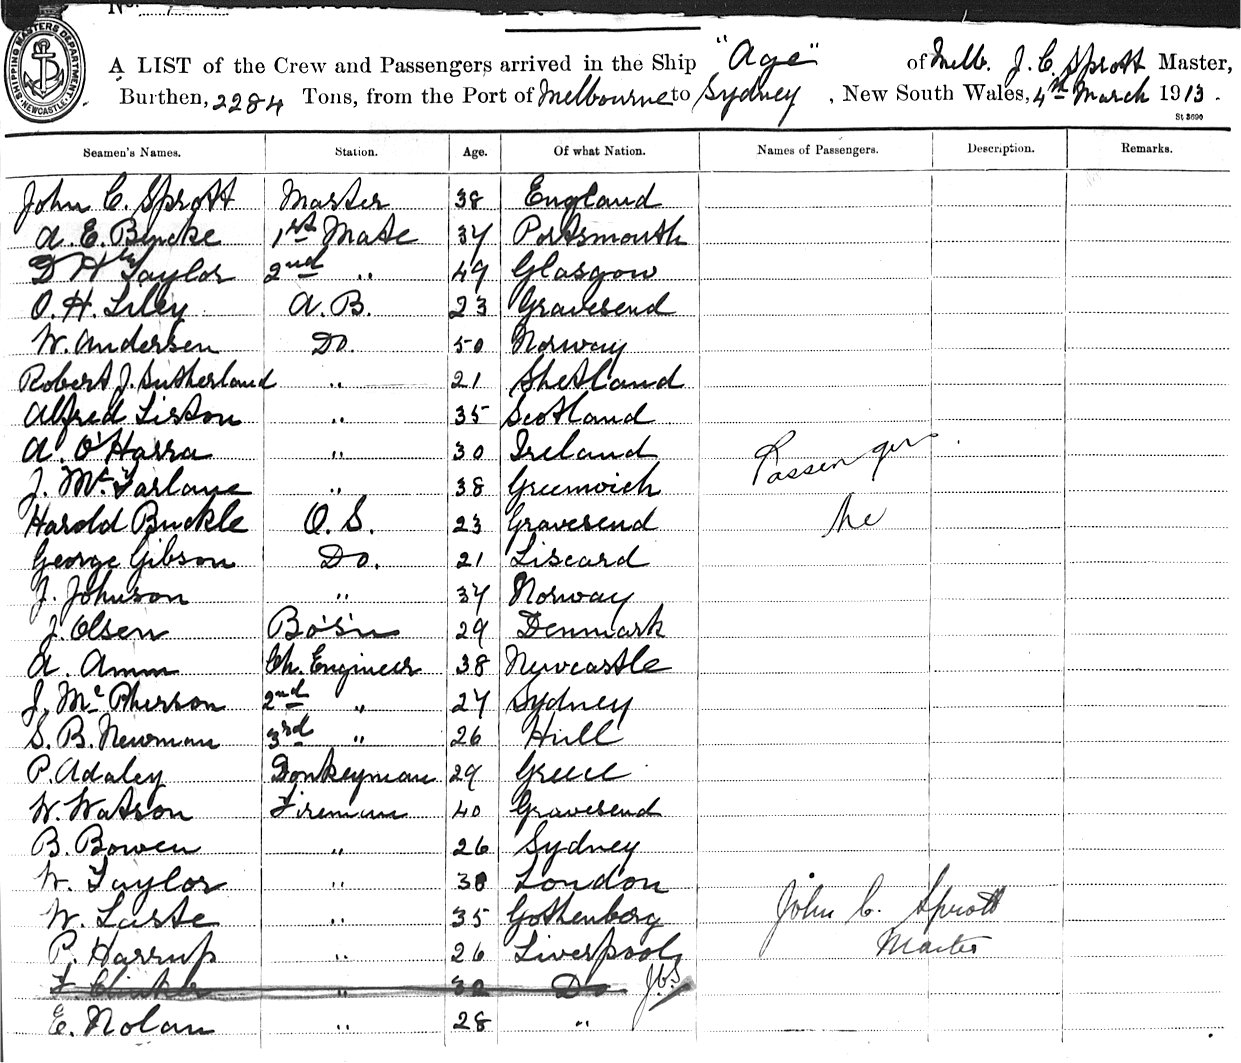 No.
SHIPPING MASTERS DEPARTMENT
NEWCASTLE
A LIST of the Crew and Passengers arrived in the Ship "Age" of Melb. J. C. Sprott Master,
Burthen, 2284 Tons, from the Port of Melbourne to Sydney, New South Wales, 4th March 1913.
St 3690
Seamen's Names. Station. Age. Of what Nation. Names of Passengers. Description. Remarks.
John C. Sprott Master 38 England
A. E. 1st Mate 37 Portsmouth
D H Taylor 2nd " 49 Glasgow
O. H. Liley A. B. 23 Gravesend
W. Andersen Do. 50 Norway
Robert J. Sutherland " 21 Shetland
Alfred Liston " 35 Scotland
A. O'Harra " 30 Ireland
J. McFarlane " 38 Greenwich
Passengers.
Harold Buckle O. S. 23 Gravesend
George Gibson Do. 21 Liscard
J. Johnson " 37 Norway
J. Olsen Bo's'n 29 Denmark
A. Amm Ch. Engineer 38 Newcastle
J. McPherson 2nd " 27 Sydney
S. B. Newman 3rd " 26 Hull
P. Adaley Donkeyman 29 Greece
W. Watson Fireman 40 Gravesend
B. Bowen " 26 Sydney
W. Taylor " London
W. Laste " 35 Gothenberg
John C. Sprott
Master
P. Harrup " 26 Liverpool
" Do JCS
E. Nolan " 28 "